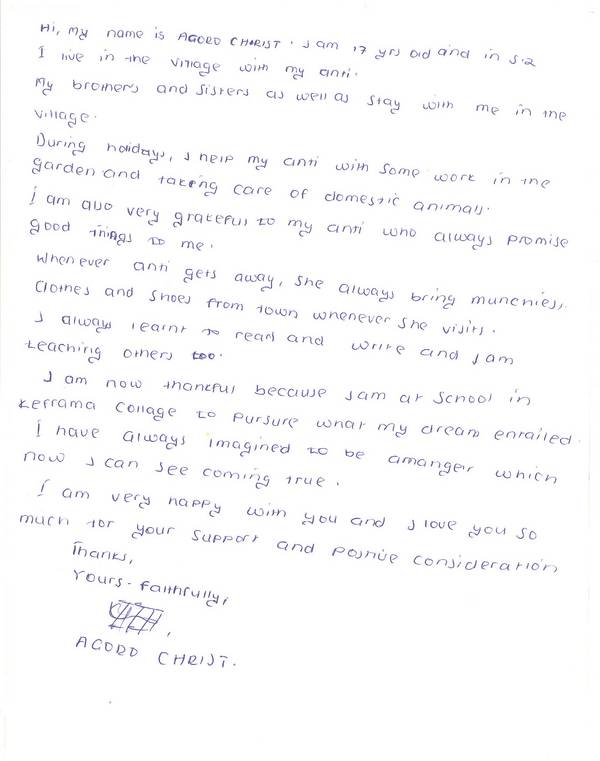 Hi, my name is AGORO CHRIST. I am 17 yrs old and in S.2
I live in the village with my anti.
My brothers and sisters as well as stay with me in the
village.
During holidays, I help my anti with some work in the
garden and taking care of domestic animals.
I am also very grateful to my anti who always promise
good things to me.
Whenever anti gets away, she always bring munchies,
clothes and shoes from town whenever she visits.
I always learnt to read and write and I am
teaching others too.
I am now thankful because I am at school in
Keframa collage to pursure what my dream entailed.
I have always imagined to be amangeir which
now I can see coming true.
I am very happy with you and I love you so
much for your support and positive consideration
Thanks,
Yours. faithfully,
AGORO CHRIST.